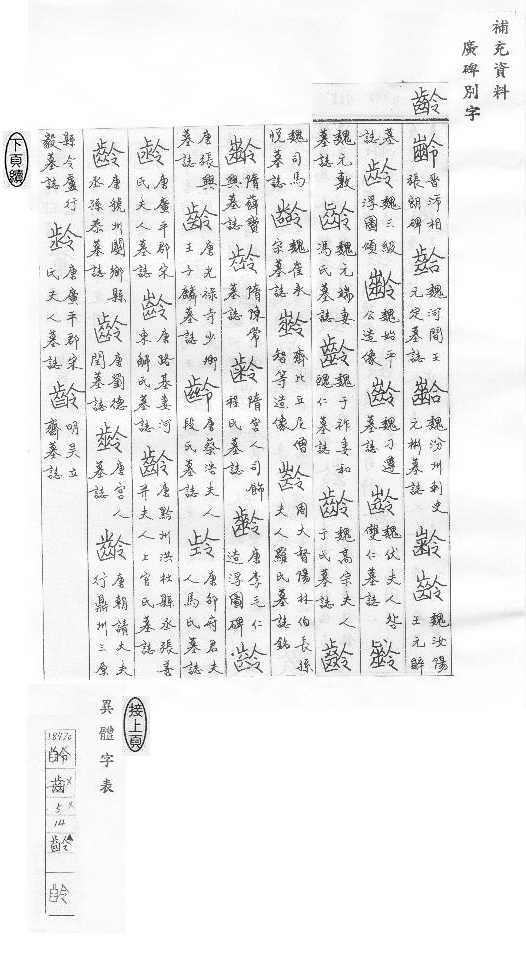 補充資料
廣碑別字
齡
齡 晉沛相張朗碑 齡 魏河間王元定墓誌 齡 魏汾州刺史元彬墓誌 齡 齡 魏汝陽王元䛒
墓誌 齡 魏三級浮圖頌 齡 魏始平公造像 齡 魏刁遵墓誌 齡 魏伏夫人昝雙仁墓誌 齡
魏元斁墓誌 齡 魏元端妻馮氏墓誌 齡 魏于祚妻和醜仁墓誌 齡 魏高宗夫人于氏墓誌 齡
魏司馬悅墓誌 齡 魏崔永宗墓誌 齡 齊比丘尼僧智等造像 齡 周大督陽林伯長孫夫人羅氏墓誌銘
齡 隋薛寶興墓誌 齡 隋陳常墓誌 齡 隋宮人司飾程氏墓誌 齡 唐李毛仁造浮圖碑 齡
唐張興墓誌 齡 唐光祿寺少卿王子麟墓誌 齡 唐蔡洪夫人段氏墓誌 齡 唐邵府君夫人馬氏墓誌
齡 唐廣平郡宋氏夫人墓誌 齡 唐路基妻河東解氏墓誌 齡 唐黔州洪杜縣丞張善并夫人上官氏墓誌
齡 唐饒州閿鄉縣丞孫恭墓誌 齡 唐劉德閏墓誌 齡 唐宮人墓誌 齡 唐朝請大夫行鼎州三原
縣令盧行毅墓誌 齡 唐廣平郡宋氏夫人墓誌 齡 明吳立齋墓誌
下頁續
接上頁
異體字表
齡
齒
5
14
齡